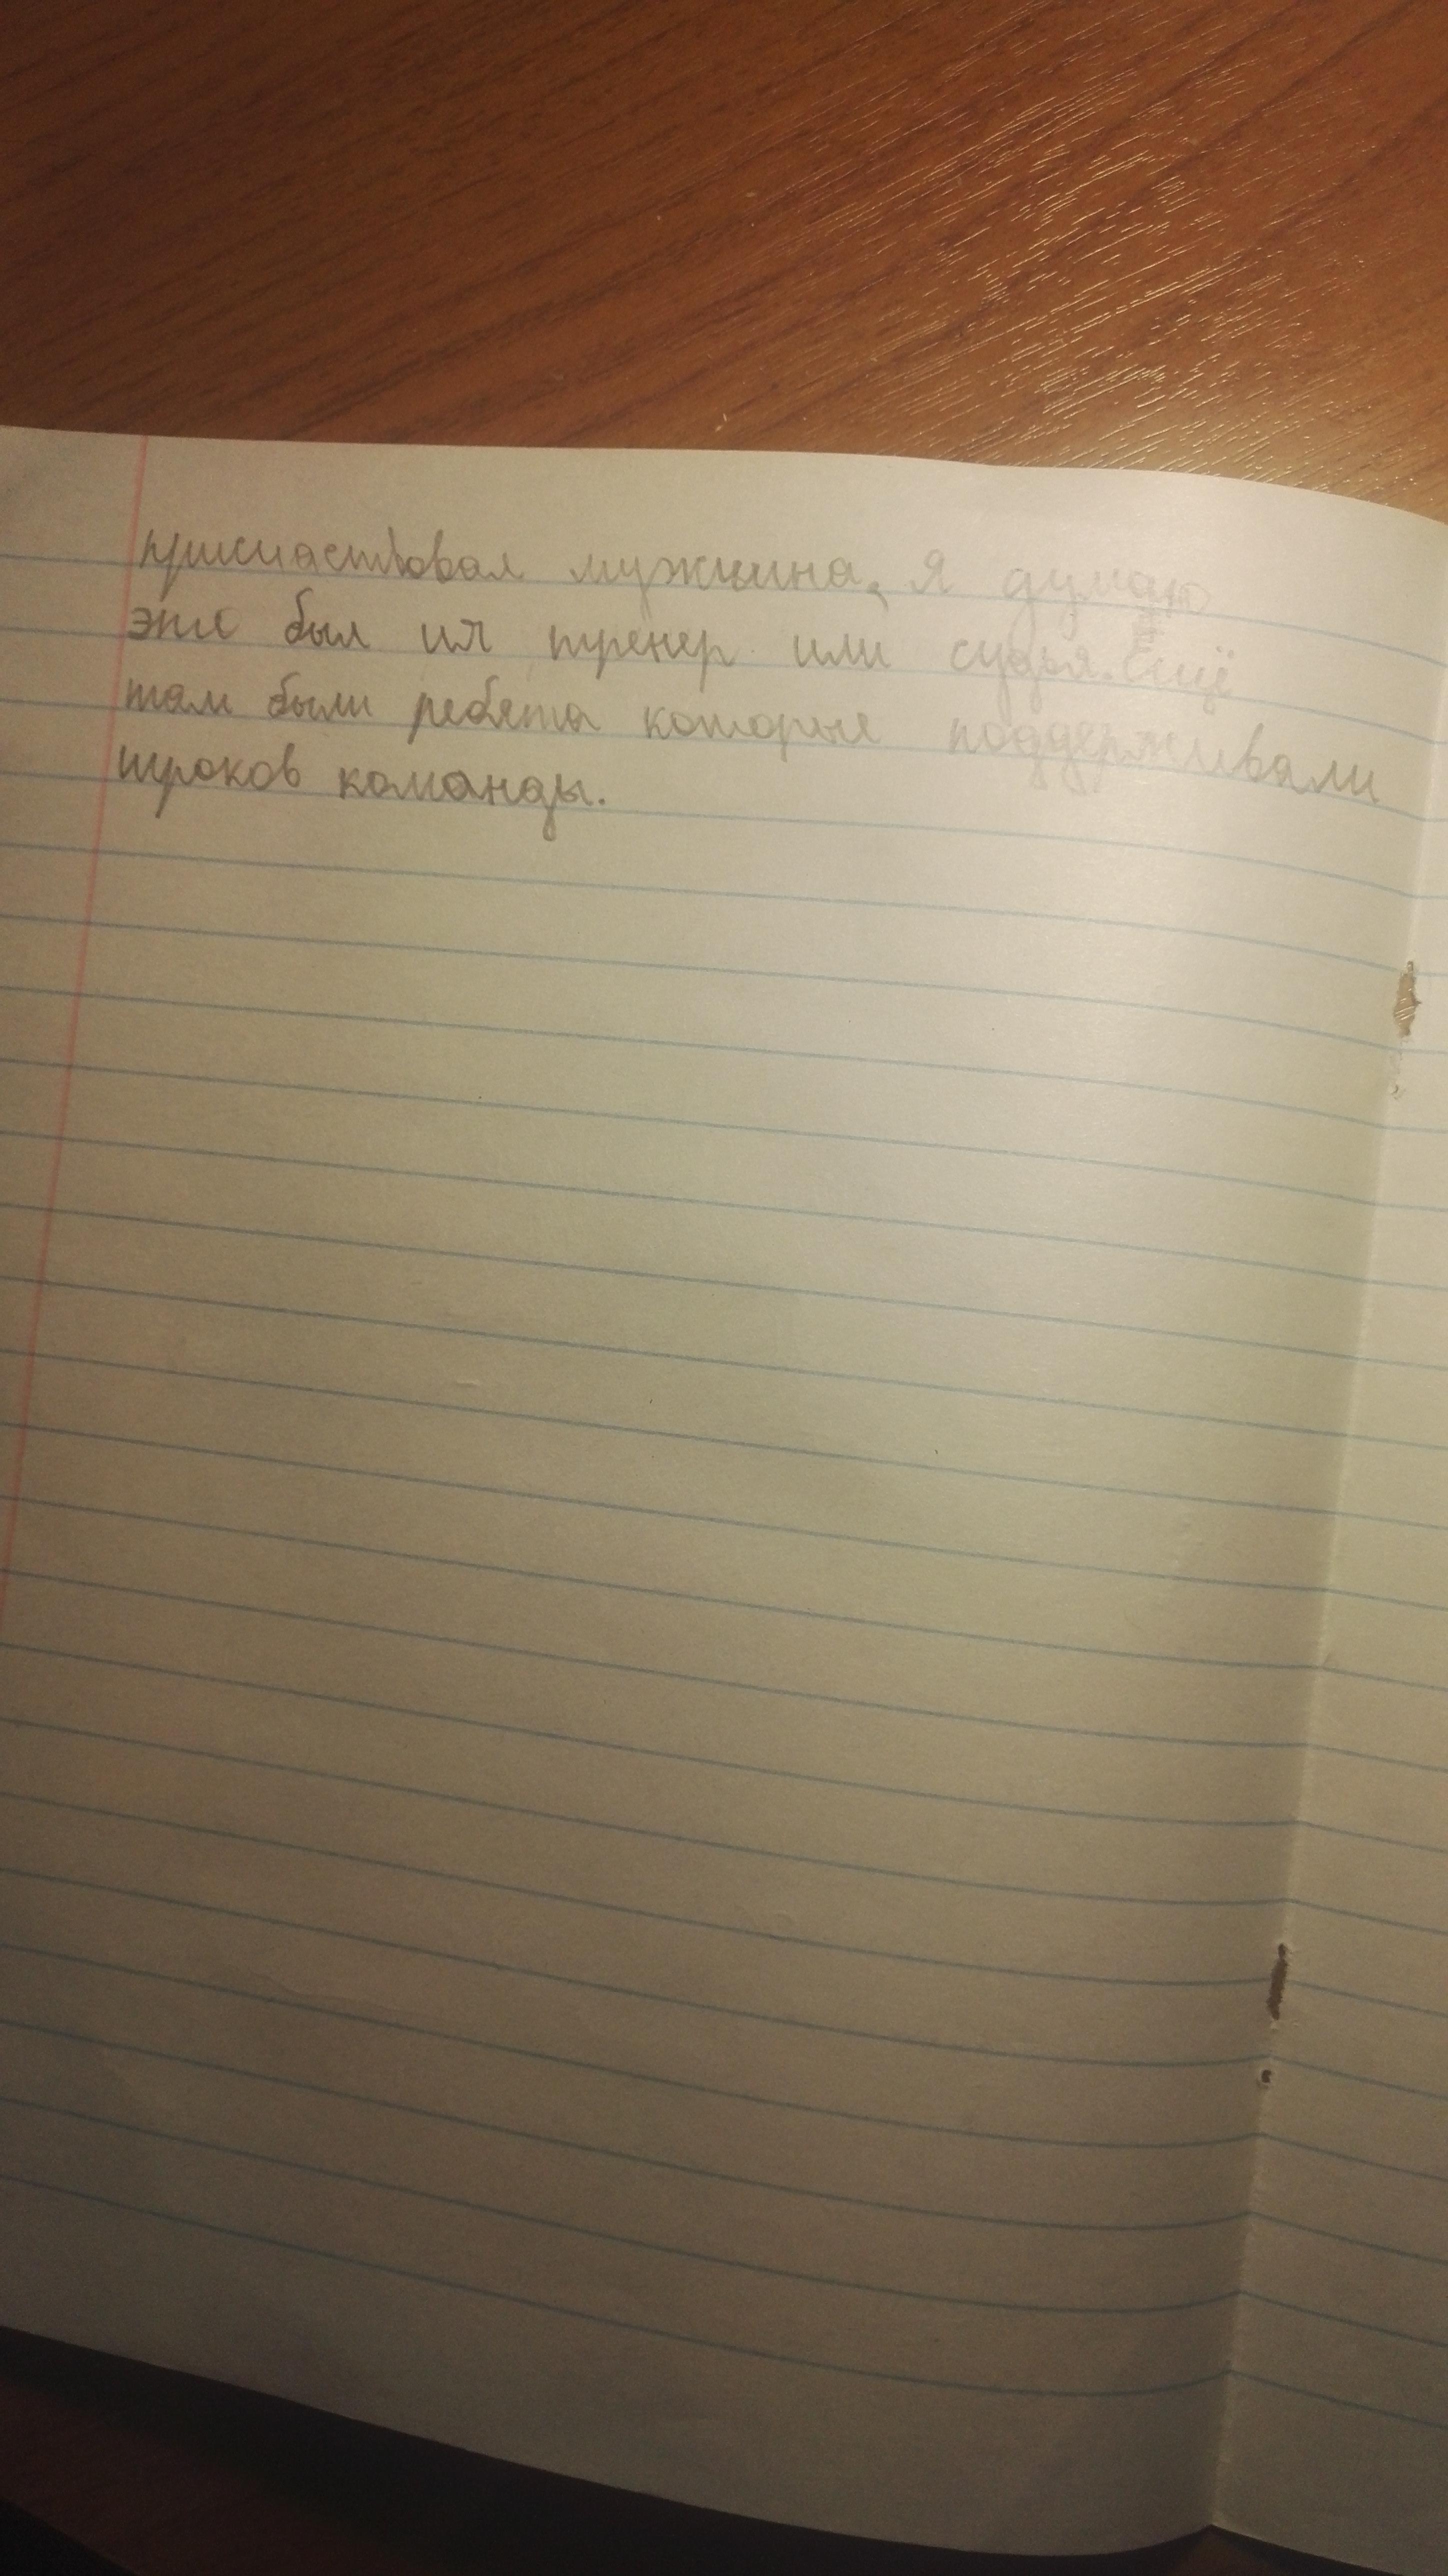 мужчина, я думаю
это был их тренер или судья. Ещё
там были ребята которые поддерживали
игроков команды.